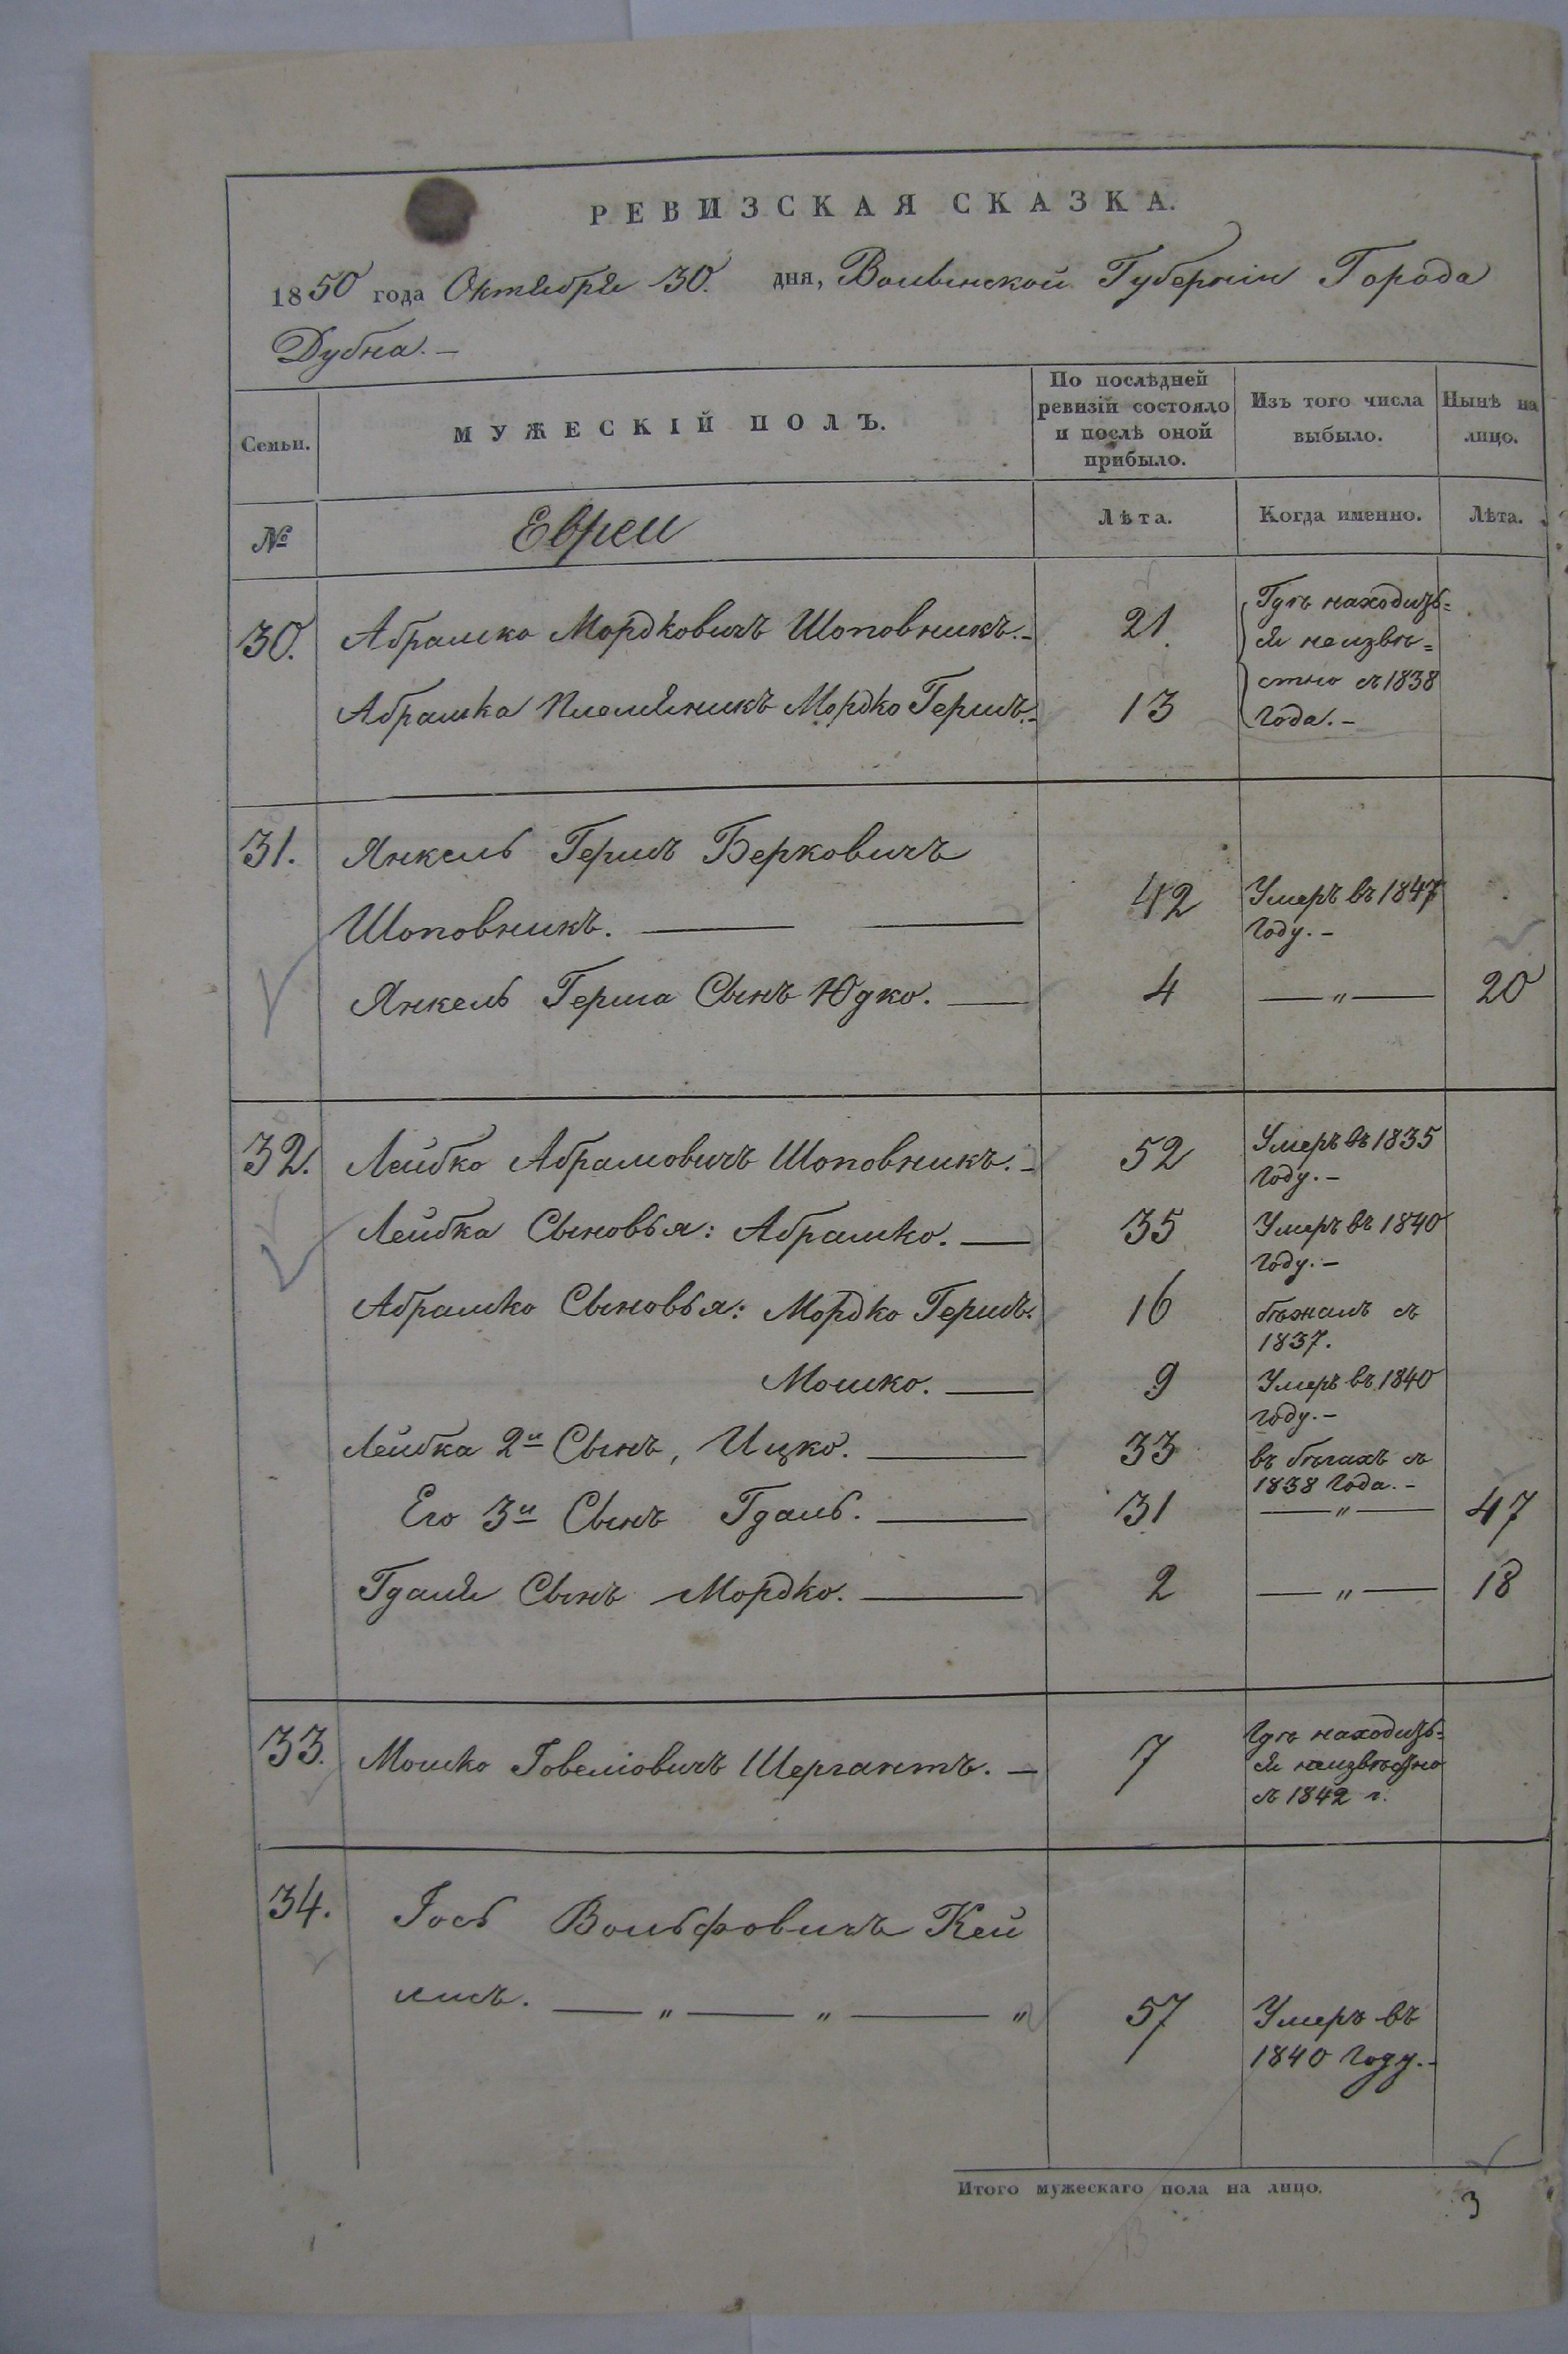 РЕВИЗСКАЯ СКАЗКА.
1850 года Октября 30. дня, Волынской Губерніи Города
Дубна. —
Семьи.
МУЖЕСКІЙ ПОЛЪ.
По послѣдней
ревизіи состояло
и послѣ оной
прибыло.
Изъ того числа
выбыло.
Нынѣ на
лицо.
№
Евреи
Лѣта.
Когда именно.
Лѣта.
30. Абрамко Мордковичъ Шоповникъ. — 21
Абрамка Племяникъ Мордко Гершъ. — 13
Гдѣ находить=
ся неизвѣ=
стно съ 1838
Года. —
31. Янкель Гершъ Берковичъ
Шоповникъ. — — 42 Умеръ въ 1847
Году. —
Янкель Герша Сынъ Юдко. — 4 — " — 20
32. Лейбко Абрамовичъ Шоповникъ. — 52 Умеръ въ 1835
Году. —
Лейбка Сыновья: Абрамко. — 35 Умеръ въ 1840
Году. —
Абрамко Сыновья: Мордко Гершъ. 16 бѣжалъ съ
1837.
Мошко. — 9 Умеръ въ 1840
году. —
Лейбка 2й Сынъ, Ицко. — 33 въ бѣгахъ съ
1838 Года. —
Его 3й Сынъ Гдаль. — 31 — " — 47
Гдаля Сынъ Мордко. — 2 — " — 18
33. Мошко Іовеліовичъ Шергантъ. — 7 Гдѣ находить=
ся неизвѣстно
съ 1842 г.
34. Іось Вольфовичъ Кей
лисъ. — " — " — " 57 Умеръ въ
1840 Году. —
Итого мужескаго пола на лицо. 3